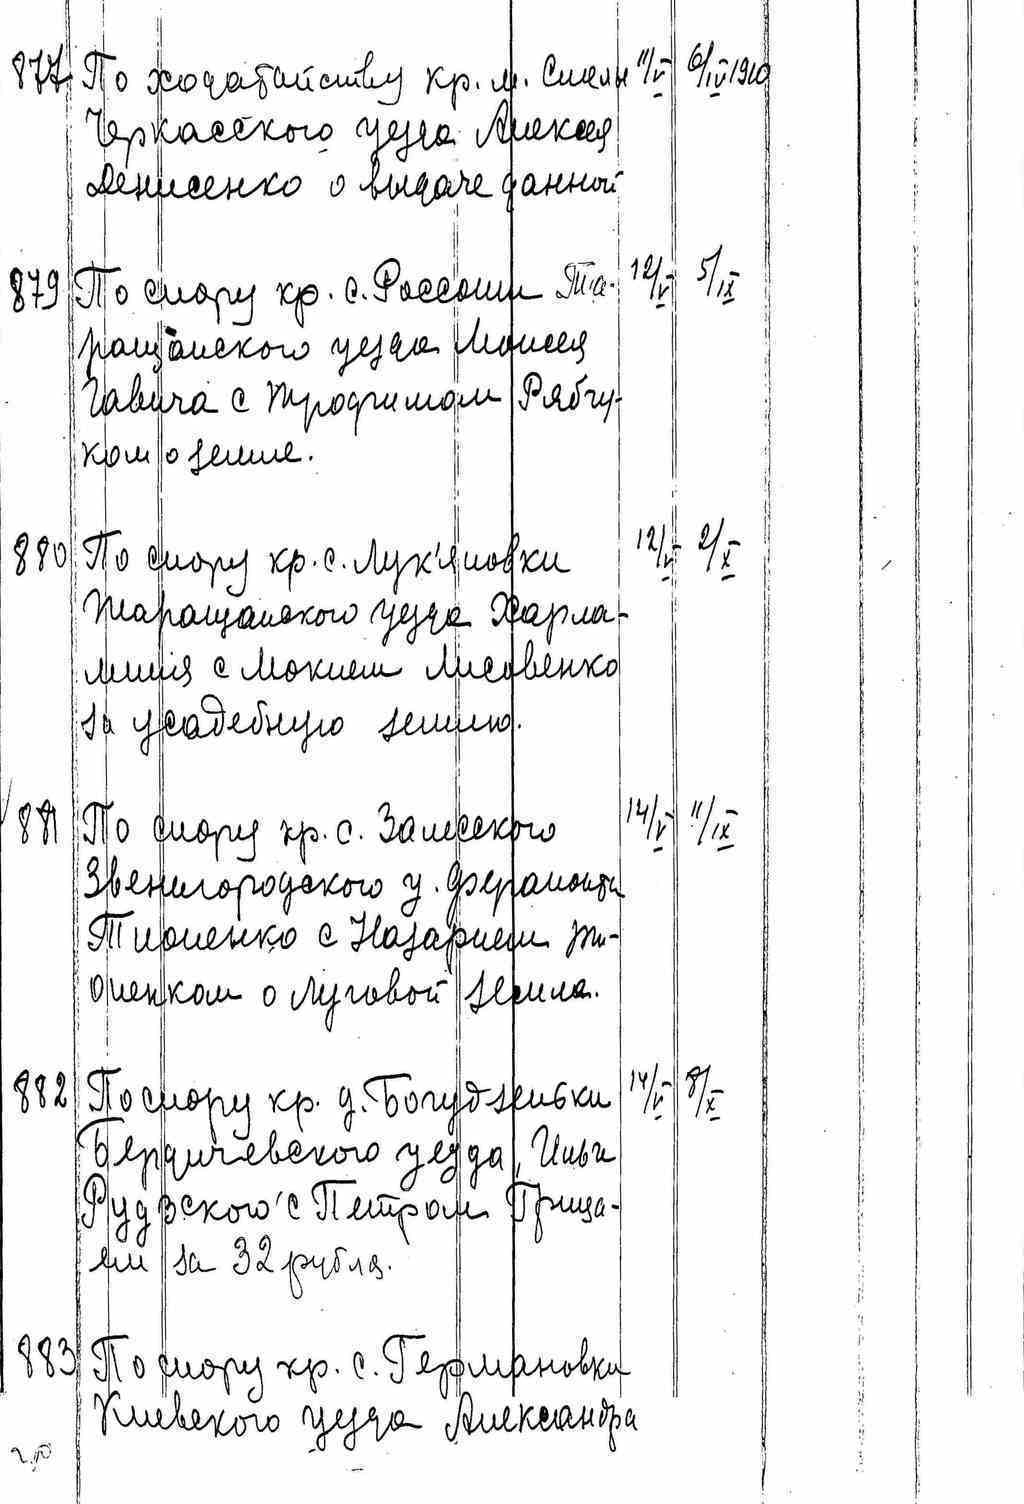 877 По ходатайству кр. м. Смелы 11/V 6/IV 1910
Черкасского уезда Алексея
Денисенко о выдаче данной
879 По спору кр. с. Россоши Та- 12/V 5/IX
ращанского уезда Моисея
Гавича с Трофимом Рябчу-
ком о земле.
880 По спору кр. с. Лук'яновки 12/V 2/X
Таращанского уезда Харла-
мпия с Мокием Лисовенко
за усадебную землю.
881 По спору кр. с. Залесского 14/V 11/IX
Звенигородского у. Ферапонта
Тионенко с Назарием Ти-
оненком о луговой земле.
882 По спору кр. д. Богудзеньки 14/V 8/X
Бердичевского уезда, Ильи
Рудзского с Петром Грица-
ем за 32 рубля.
883 По спору кр. с. Германовки
Киевского уезда Александра